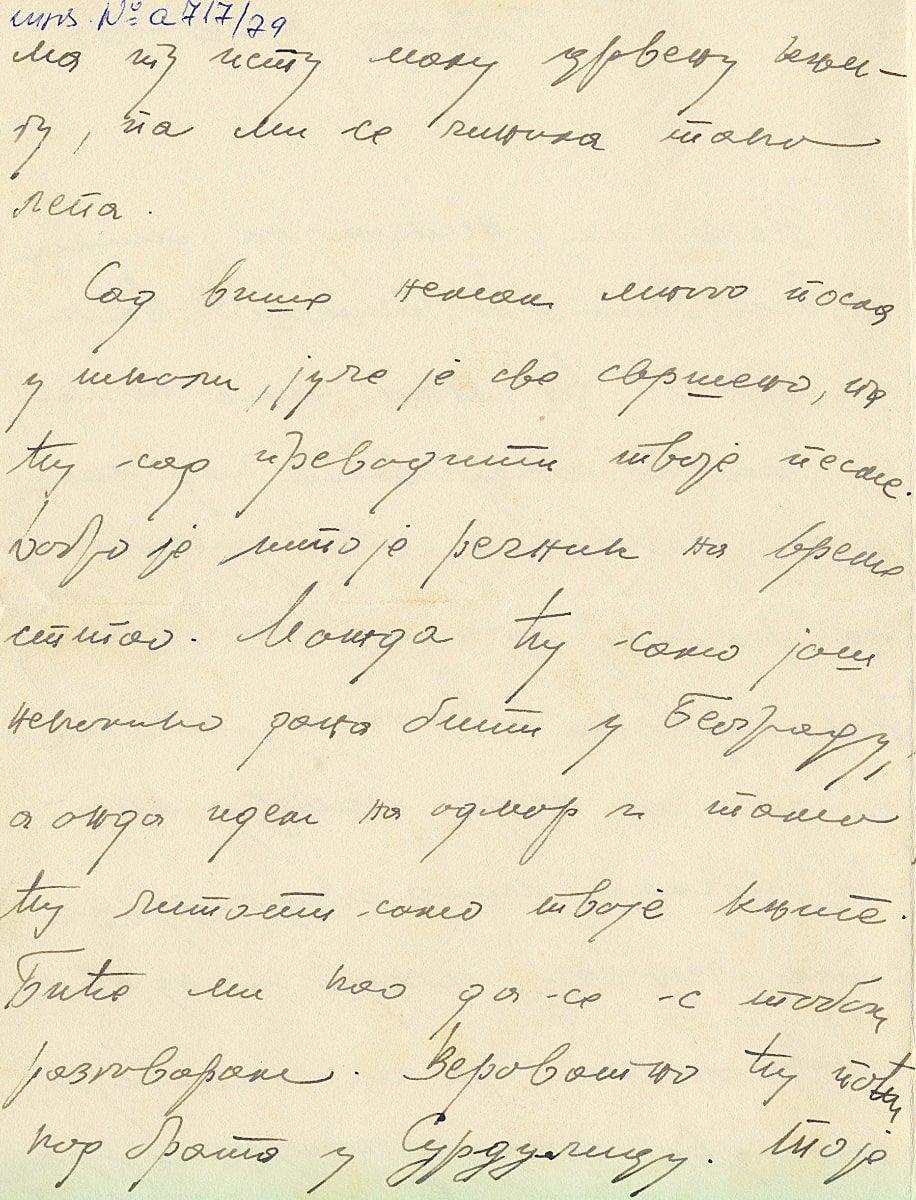 инв. № а 717/79
ма ту исту малу црвену књи-
гу, па ми се чинила тако
лепа.
Сад више немам много посла
у школи, јуче је све свршено, па
ћу сад преводити твоје песме.
Добро је што је речник на време
стигао. Можда ћу само још
неколико дана бити у Београду,
а онда идем на одмор и тамо
ћу читати само твоје књиге.
Биће ми као да се с тобом
разговарам. Вероватно ћу поћи
код брата у Сурдулицу. То је